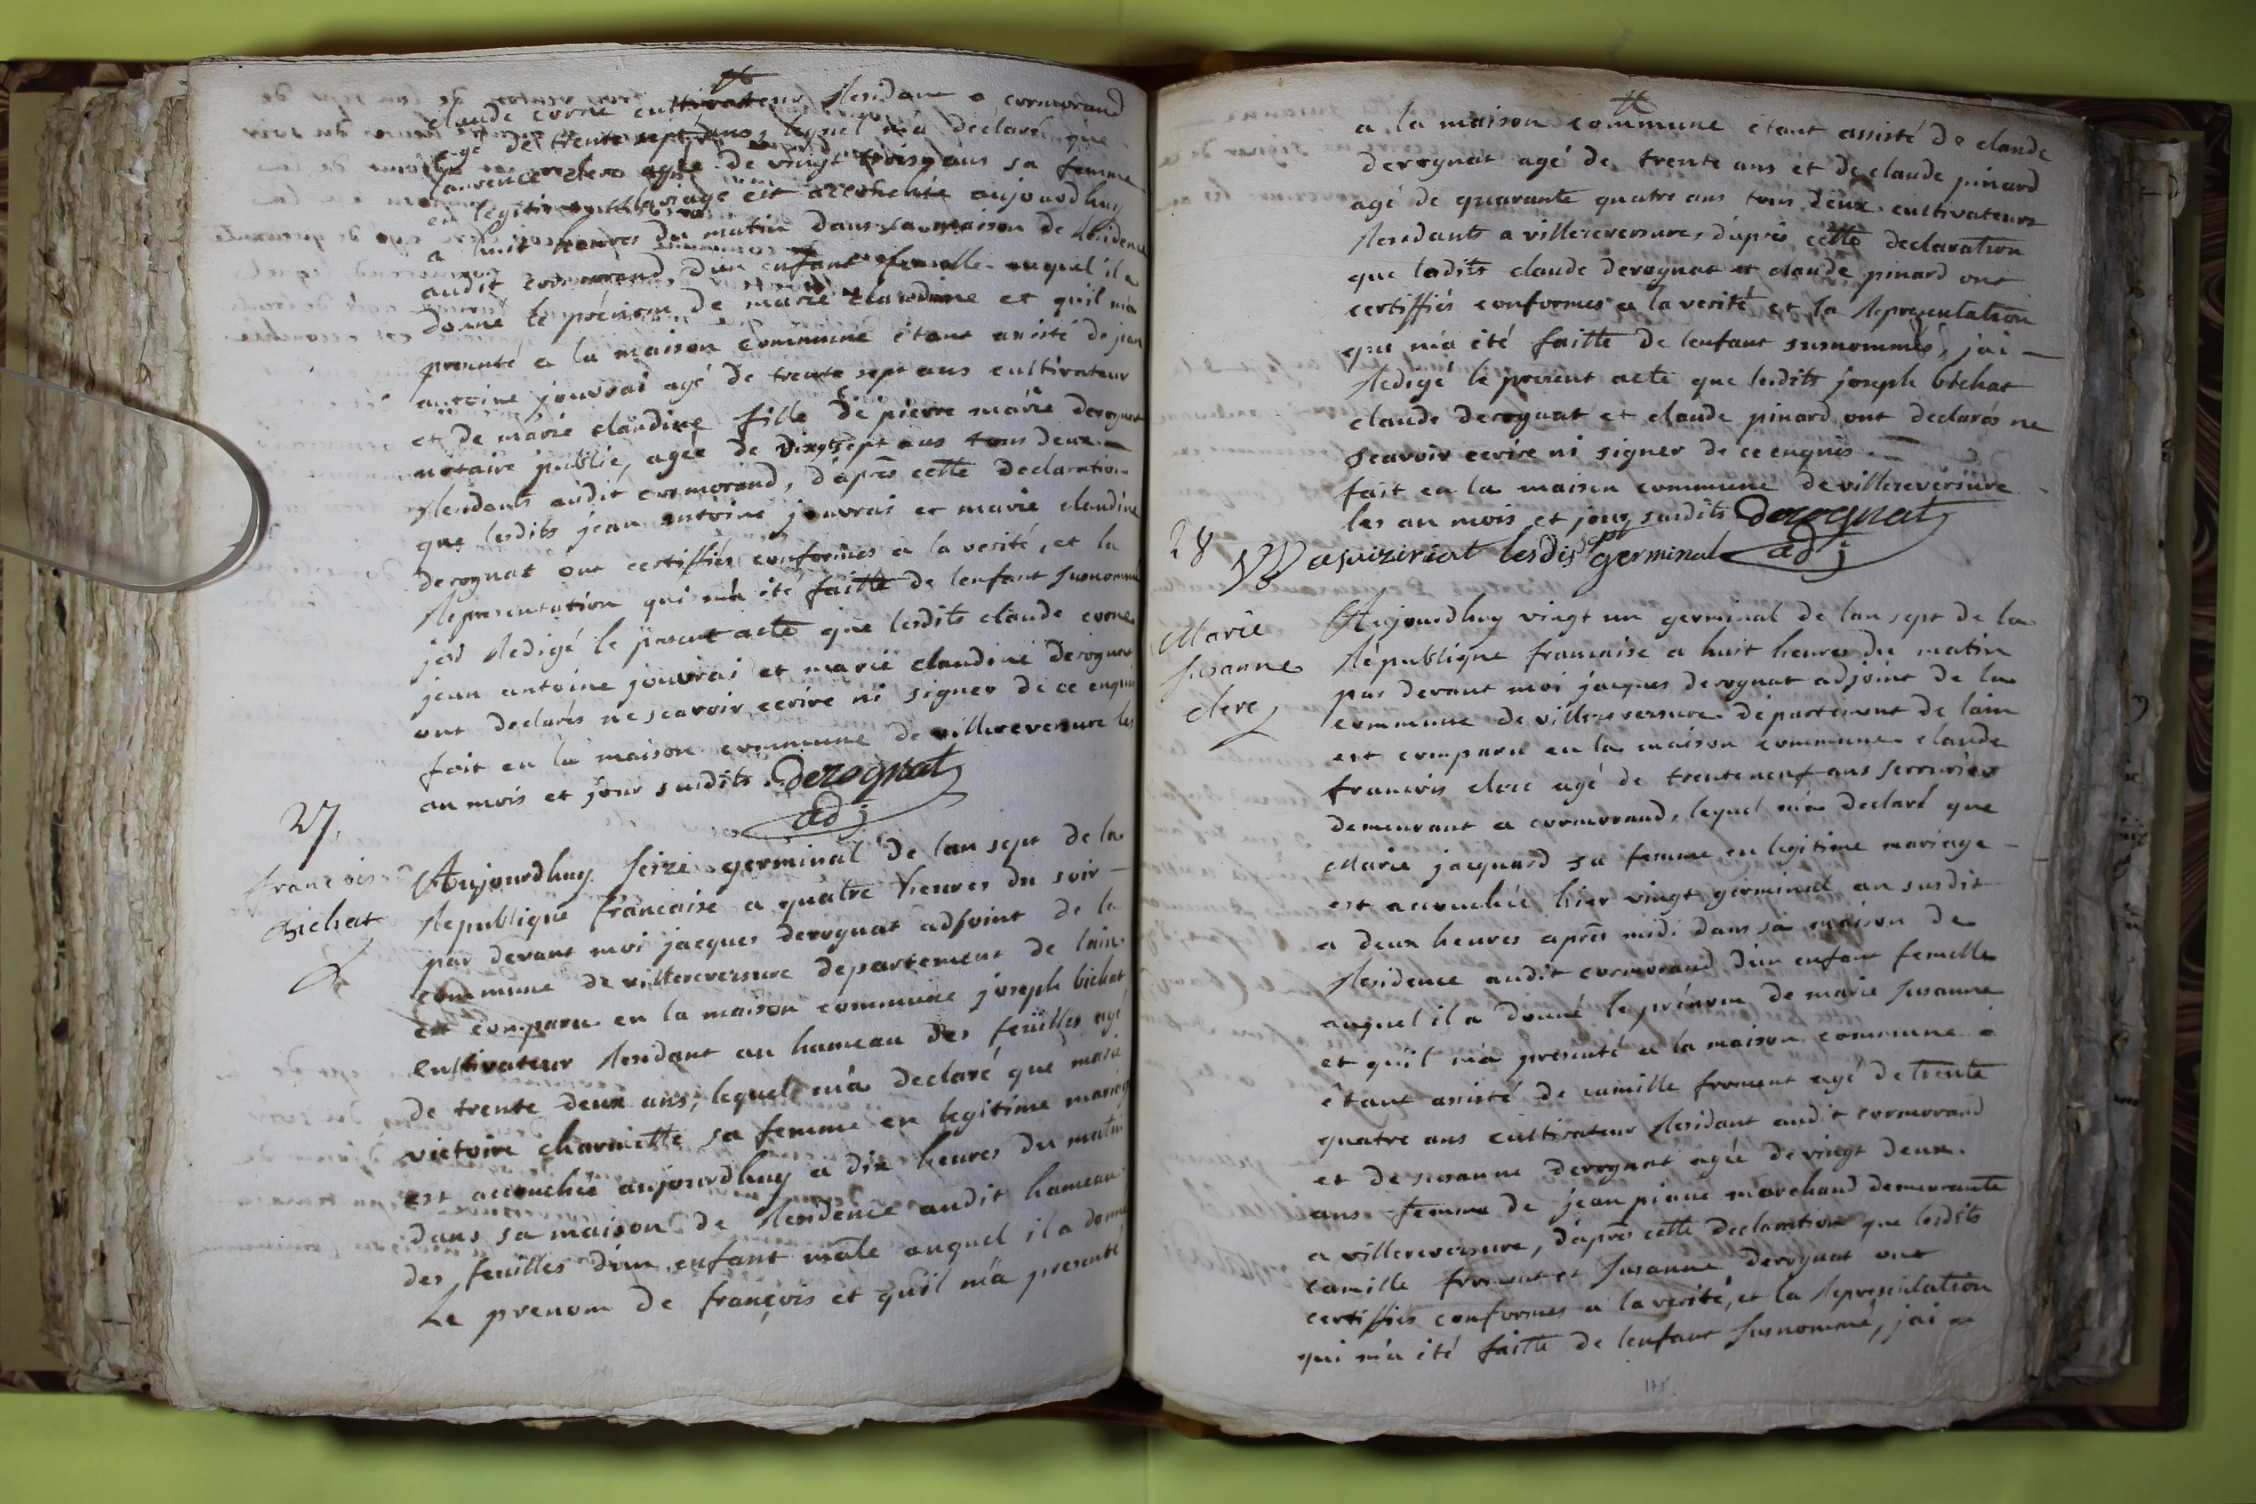 claude corne cultivateur Residant a cormorand
agé de trente sept ans, lequel m'a declaré que
laurence clerc agée de vingt trois ans sa femme
en legitime Mariage est accouchée aujourdhuy
a huit heures du matin dans sa maison de Residence
audit cormorand, dun enfant femelle auquel il a
donné le prénom de marie claudine et quil m'a
presenté a la maison commune étant assisté de jean
antoine jouvrai agé de trente sept ans cultivateur
et de marie claudine fille de pierre marie derognat
notaire public, agée de vingtsept ans tous deux
Residants audit cormorand, d'après cette declaration
que lesdits jean antoine jouvrai et marie claudine
derognat ont certiffiés conformes a la verité, et la
Representation qui m'a été faitte de lenfant susnommé
jai Redigé le present acte que lesdits claude corne
jean antoine jouvrai et marie claudine derognat
ont declarés ne scavoir ecrire ni signer de ce enquis
fait en la maison commune de villereversure les
an mois et jour susdits. Derognat
adj
27.
francois
Bichat
Aujourdhuy seize germinal de lan sept de la
Republique francaise a quatre heures du soir
par devant moi jacques derognat adjoint de la
commune de villereversure departement de lain
est comparu en la maison commune joseph bichat
cultivateur Residant au hameau des feuilles agé
de trente deux ans, lequel m'a declaré que marie
victoire charnette sa femme en legitime mariage
est accouchée aujourdhuy a dix heures du matin
dans sa maison de Residence audit hameau
des feuilles dun enfant male auquel il a donné
Le prenom de françois et quil m'a presenté
a la maison commune étant assisté de claude
derognat agé de trente ans et de claude pinard
agé de quarante quatre ans tous deux cultivateurs
Residants a villereversure, d'après cette declaration
que lesdits claude derognat et claude pinard ont
certiffiés conformes a la verité et la Representation
qui m'a été faitte de lenfant susnommés, jai
Redigé le present acte que lesdits joseph bichat
claude derognat et claude pinard ont declarés ne
scavoir ecrire ni signer de ce enquis.
fait en la maison commune de villereversure
les an mois et jour susdits Derognat
adj
28 germinal
Marie
susanne
clerc
Aujourdhuy vingt un germinal de lan sept de la
République francaise a huit heures du matin
par devant moi jacques derognat adjoint de la
commune de villereversure departement de lain
est comparu en la maison commune claude
francois clerc agé de trente neuf ans serrurier
demeurant a cormorand, lequel m'a declaré que
Marie jacquard sa femme en legitime mariage
est accouchée hier vingt germinal an susdit
a deux heures après midi dans sa maison de
Residence audit cormorand dun enfant femelle
auquel il a donné le prénom de marie susanne
et quil m'a presenté a la maison commune
étant assisté de camille froment agé de trente
quatre ans cultivateur Residant audit cormorand
et de susanne derognat agée de vingt deux
ans femme de jean pierre marchand demeurante
a villereversure, d'après cette declaration que lesdits
camille froment et susanne derognat ont
certiffiés conformes a la verité, et la Representation
qui m'a été faitte de lenfant susnommé, jai